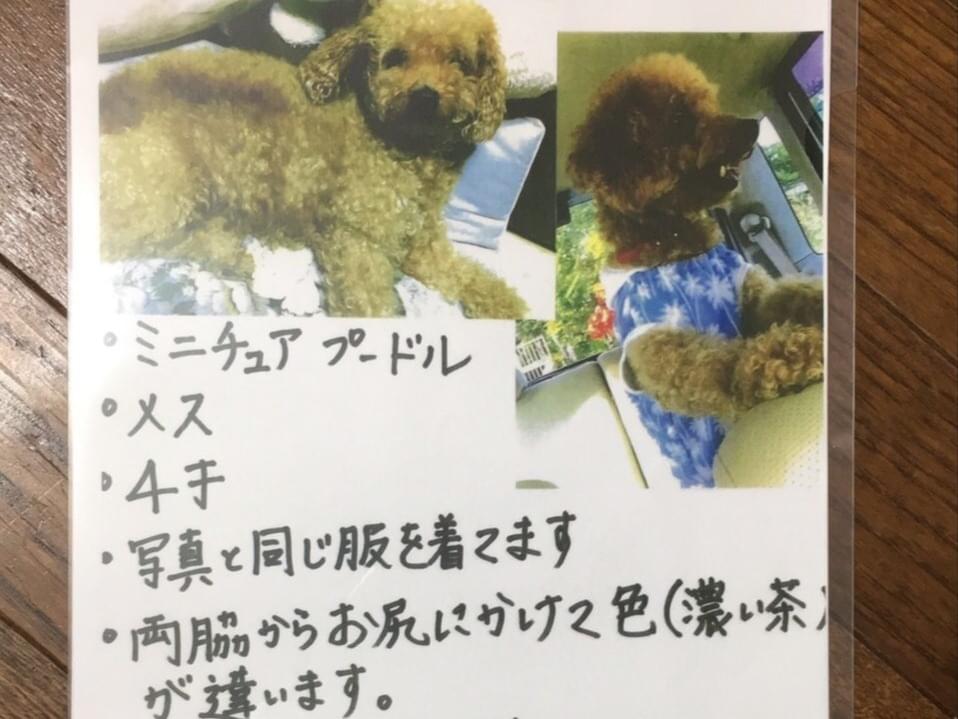 ・ミニチュア プードル
・メス
・4才
・写真と同じ服を着てます
・両脇からお尻にかけて色(濃い茶)
が違います。